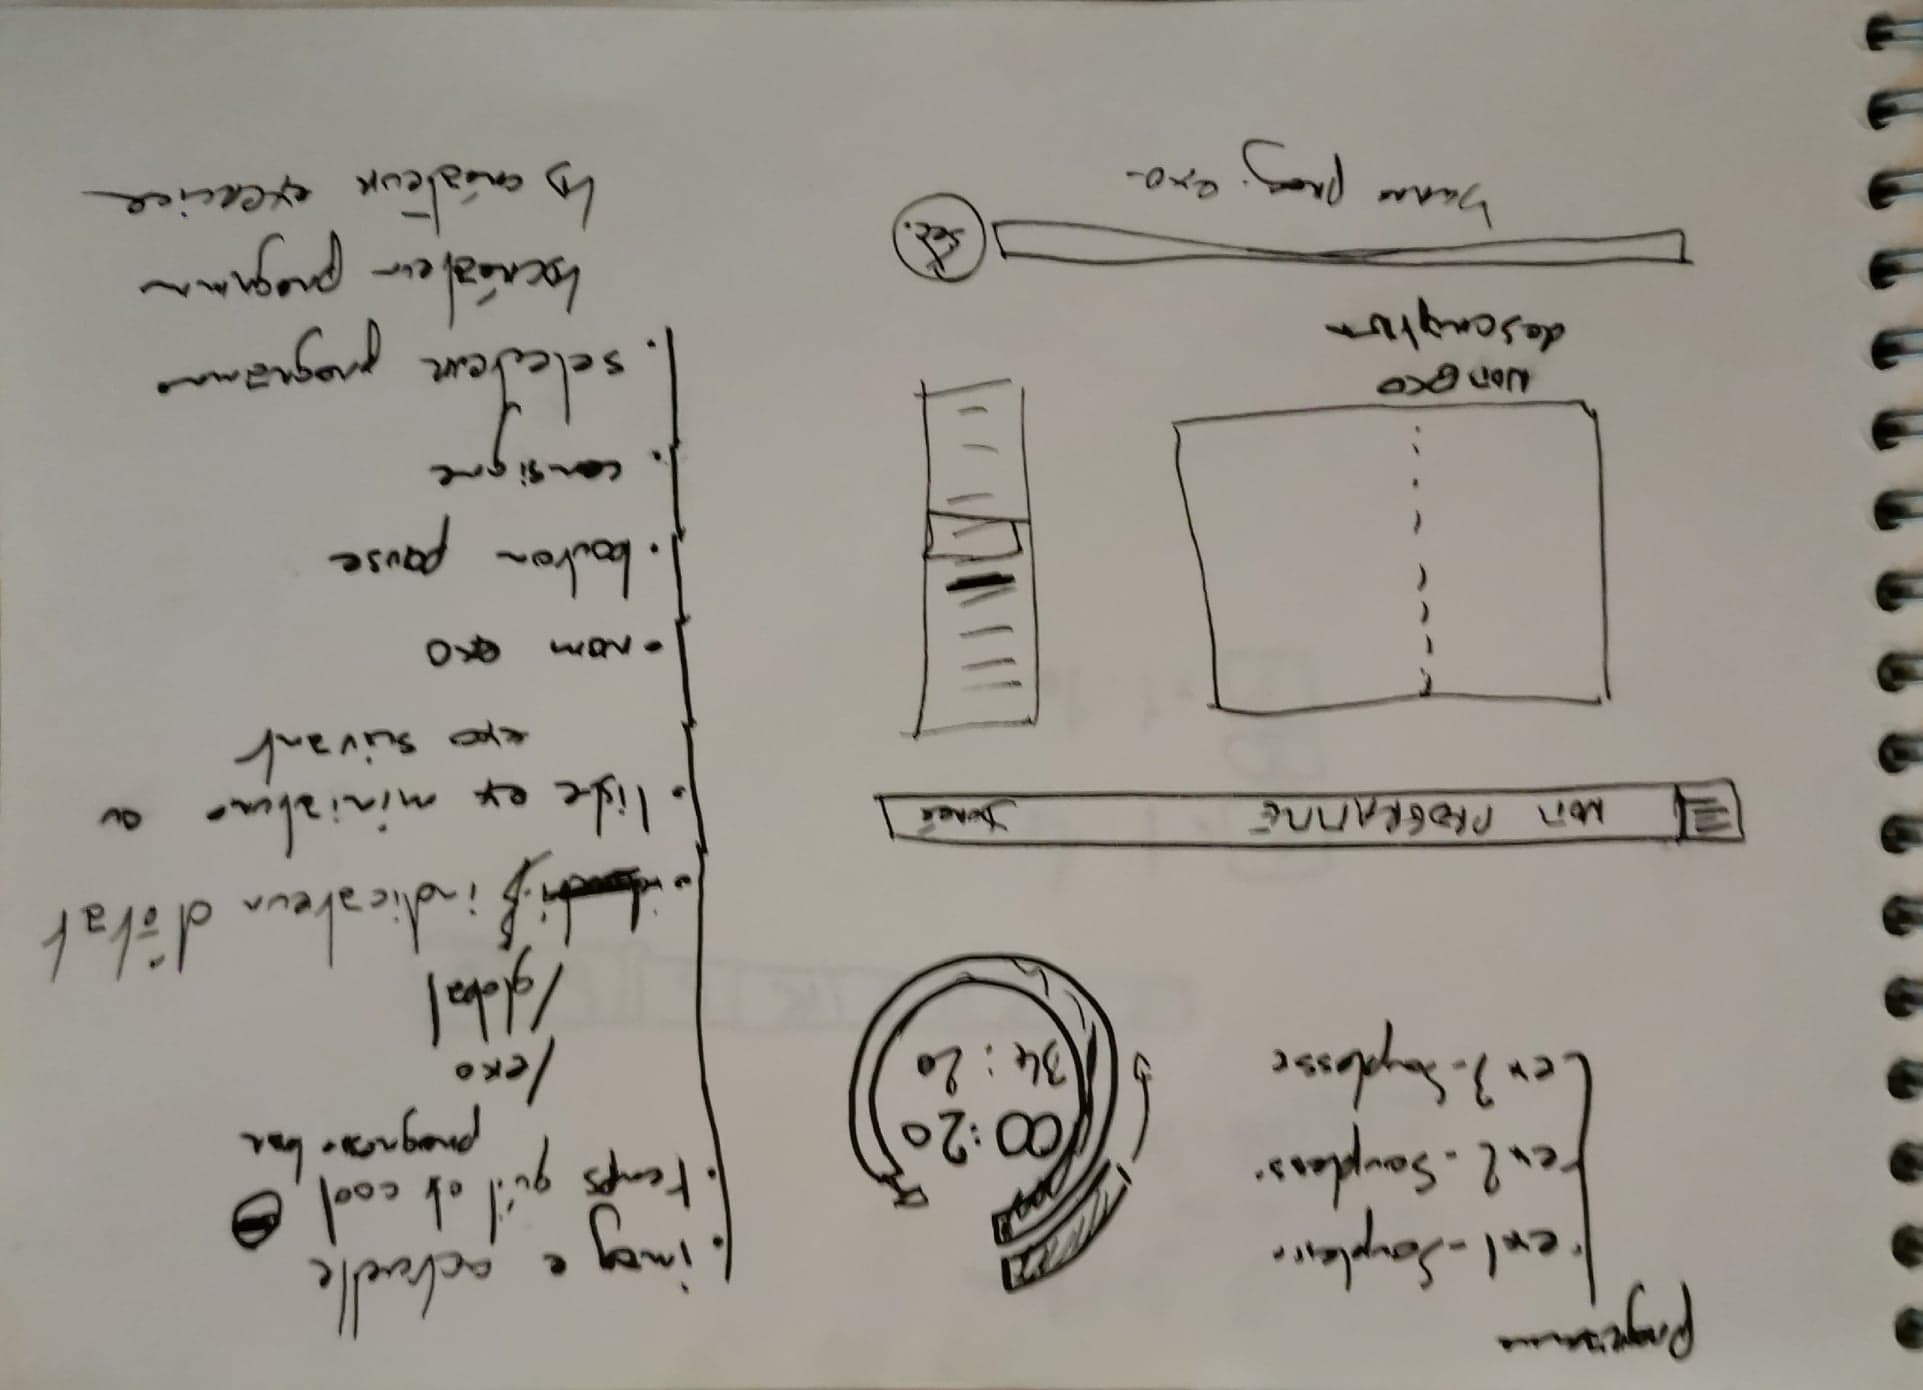 programme
ex1 - Souplesse
ex2 - Soupless.
ex3 - Souplesse
00:20
34:20
NOM PROGRAMME
durée
NOM EXO
description
sec.
barre prog. exo
. image actuelle
. temps qu'il et cool
progress bar
/exo
/global
indicateur d'état
. liste ex miniature ou
exo suivant
. nom exo
. bouton pause
. consigne
. selecteur programme
↳ créateur programm
↳ créateur exercice